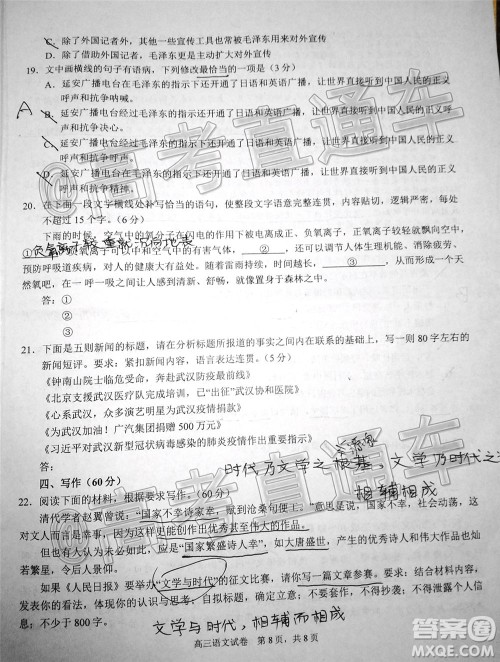 C. 除了外国记者外，其他一些宣传工具也常被毛泽东用来对外宣传
D. 除了借助外国记者外，毛泽东更是主动扩大对外宣传
19. 文中画横线的句子有语病，下列修改最恰当的一项是（3 分）
A
A. 延安广播电台在毛泽东的指示下还开通了日语和英语广播，让世界直接听到中国人民的正义呼声和抗争呐喊。
B. 延安广播电台经过毛泽东的指示下还开通了日语和英语广播，让世界直接听到中国人民的正义呼声和抗争决心。
C. 延安广播电台经过毛泽东的指示还开通了日语和英语广播，让世界直接听到中国人民的正义呼声和抗争呼声。
D. 延安广播电台在毛泽东的指示下还开通了日语和英语广播，让世界直接听到中国人民的正义呼声和抗争精神。
20. 在下面一段文字横线处补写恰当的语句，使整段文字语意完整连贯，内容贴切，逻辑严密，每处不超过 15 个字。（6 分）
下雨的时候，空气中的氧分子在闪电的作用下被电离成正、负氧离子，正氧离子较轻就飘向高空，
①负氧离子较重就飘向地表
负氧离子可以和空气中的有害气体、 ② ，还可以调节人体生理机能、消除疲劳、预防呼吸道疾病，对人的健康大有裨益。随着雷雨持续，时间越长， ③ ，大自然就变成了一个天然氧吧，在一呼一吸之间让人感到清新、舒畅，就像置身于森林之中。
答：①
②
③
21. 下面是五则新闻的标题，请在分析标题所报道的事实之间内在联系的基础上，写一则 80 字左右的新闻短评。要求：紧扣材料，语言表达连贯。（5 分）
《钟南山院士临危受命，奔赴武汉防疫最前线》
《北京支援武汉医疗队完成培训，已“出征”武汉协和医院》
《心系武汉，众多艺术明星为疫情捐款》
《为武汉加油！广汽集团捐赠 500 万元》
《习近平对武汉新型冠状病毒感染的肺炎疫情作出重要指示》
答：
四、写作（60 分）
时代乃文学之根基，文学乃时代之
相辅相成
22. 阅读下面的材料，根据要求写作。（60 分）
清代学者赵翼曾说，“国家不幸诗家幸，赋到沧桑句便工”。意思是说，国家不幸，社会动荡，这对文人而言其实是一件幸事，因为这样更能创作出优秀甚至伟大的作品。
但也有人不同意，认为应是“国家繁盛诗人幸”，如大唐盛世，伟大的诗人和优秀的诗作均灿若繁星，令后人景仰。
如果《人民日报》要举办“文学与时代”的征文比赛，请你写一篇文章参赛。要求：自选角度，确定立意，明确文体，自拟标题；不要套作，不得抄袭；不得泄露个人信息；不少于 800 字。
文学与时代，相辅而相成
高三语文试卷 第 8 页，共 8 页
@高考直通车
答案圈
MXQE.COM